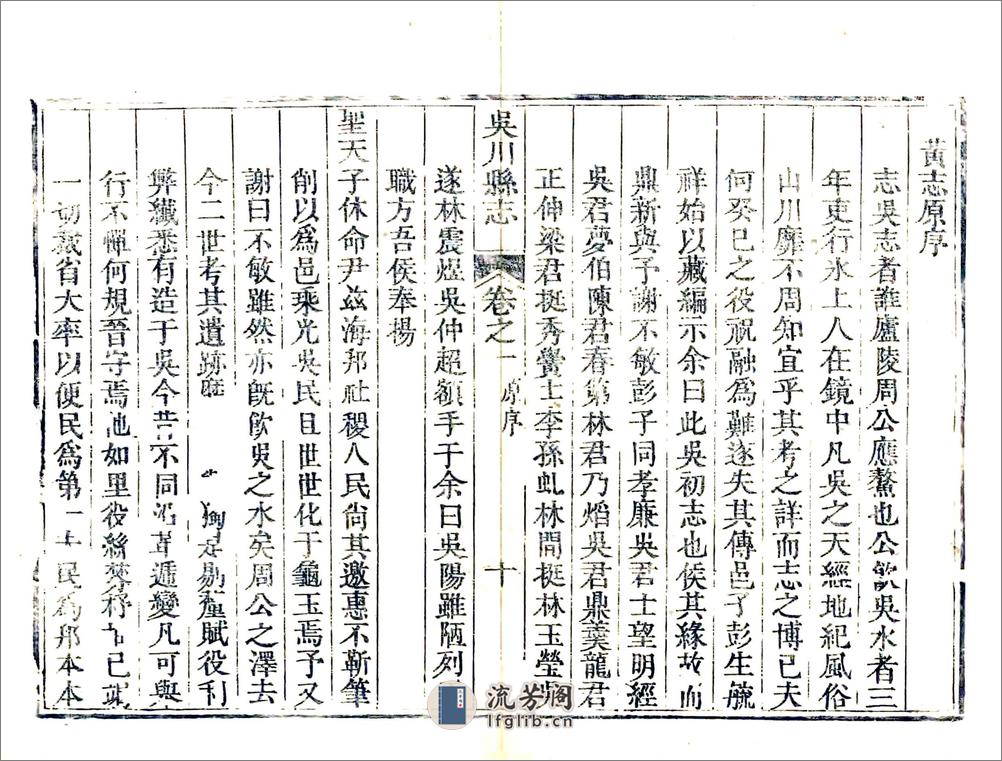 黃志原序
志吳志者誰廬陵周公應鰲也公飲吳水者三
年吏行氷上人在鏡中凡吳之天經地紀風俗
山川靡不周知宜乎其考之詳而志之博已夫
何癸巳之役祝融為難遂失其傳邑子彭生毓
祥始以藏編示余曰此吳初志也侯其緣故而
鼎新與予謝不敏彭子同孝廉吳君士望明經
吳君夢伯陳君春第林君乃焰吳君鼎羹龍君
正伸梁君挺秀黌士李孫虬林間挺林玉瑩
吳川縣志 卷之一 原序 十
遂林震煜吳仲超額手于余曰吳陽雖陋列
職方吾侯奉揚
聖天子休命尹茲海邦社稷人民尙其邀惠不靳筆
削以為邑乘光吳民且世世化于龜玉焉予又
謝曰不敏雖然亦旣飮吳之水矣周公之澤去
今二世考其遺跡 剔釐賦役利
弊纖悉有造于吳今昔不同沿革遞變凡可與
行不憚何規晉守焉池如里役絲棼 已
一切裁省大率以便民為第一 民為邦本本
流芳閣
lfglib.cn